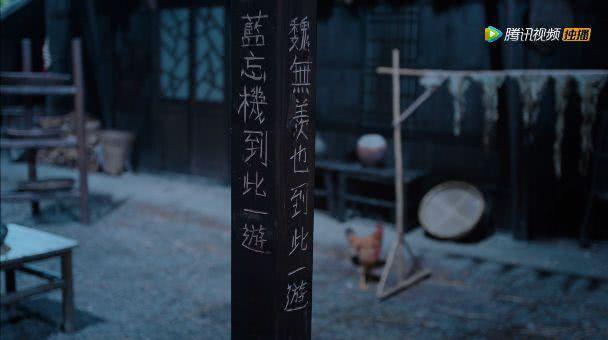 藍忘機到此一遊
魏無羨也到此一遊
腾讯视频 独播